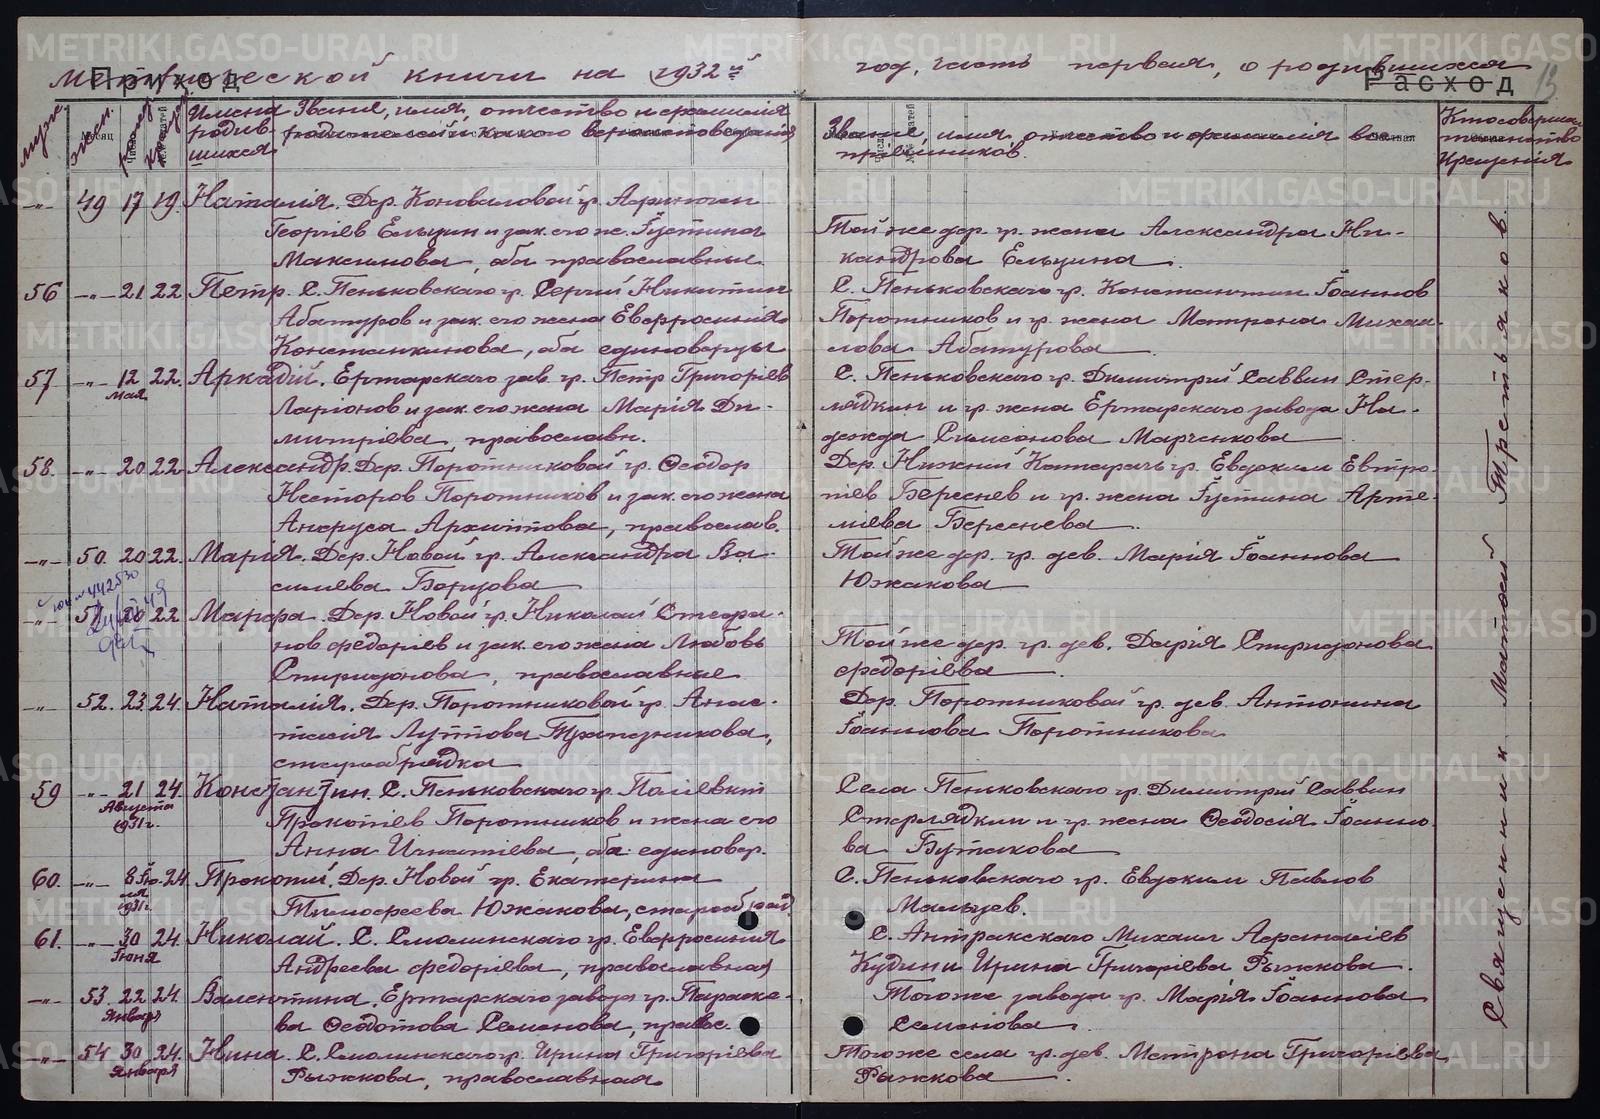 Метрической книги на 1932й год, часть первая, о родившихся
Приход
Расход
13
мужс. женс. Имена родившихся Звание, имя, отчество и фамилия родителей и какого вероисповедания
Звание, имя, отчество и фамилия восприемников.
Кто совершал таинство крещения
-"- 49 17 19. Наталія. Дер. Коноваловой гр.
Георгіев Ельцин и зак. его ж. Іустина
Максимова, оба православныя.
Той же дер. гр. жена Александра Ни-
кандрова Ельцина.
56 -"- 21 22 Петр. С. Пеньковскаго гр. Сергий Никитин
Абатуров и зак. его жена Евфросинія
Константинова, оба единоверцы
С. Пеньковскаго гр. Константин Іоаннов
Поротников и гр. жена Матрона Михаи-
лова Абатурова.
57 -"- 12 Мая 22. Аркадій. Ертарскаго зав. гр. Петр Григоріев
Ларіонов и зак. его жена Марія Ди-
митріева, православн.
С. Пеньковскаго гр. Димитрий Саввин Стер-
лядкин и гр. жена Ертарскаго завода На-
дежда Симеонова Марченкова.
58. -"- 20 22 Александр. Дер. Поротниковой гр. Ѳеодор
Несторов Поротников и зак. его жена
Анфуса Архипова, православ.
Дер. Нижний Катарач гр. Евдоким Евтро-
піев Береснев и гр. жена Іустина Арте-
міева Береснева.
-"- 50. 20 22. Марія. Дер. Новой гр. Александра Ва-
силіева Борцова
Той же дер. гр. дев. Марія Іоаннова
Южакова
-"- 51 20 22 Марфа. Дер. Новой гр. Николай Стефа-
нов Федоріев и зак. его жена Любовь
Спиридонова, православные
Той же дер. гр. дев. Дарія Спиридонова
Федоріева.
-"- 52. 23 24. Наталія. Дер. Поротниковой гр. Анас-
тасія Луппова Трапезникова,
старообрядка
Дер. Поротниковой гр. дев. Антонина
Іоаннова Поротникова
59 -"- 21 Августа 1931 г. 24. Константин. С. Пеньковскаго гр. Поліевкт
Прокопіев Поротников и жена его
Анна Игнатіева, оба единовер.
Села Пеньковскаго гр. Димитрий Саввин
Стерлядкин и гр. жена Ѳеодосія Іоанно-
ва Бутакова
60. -"- 8 1931 г. 24 Прокопий. Дер. Новой гр. Екатерина
Тимофеева Южакова, старообряд.
С. Пеньковскаго гр. Евдоким Павлов
Мальцев.
61. -"- 30 Іюня 24. Николай. С. Смолинскаго гр. Евфросинія
Андреева Федоріева, православная
С. Антракскаго Михаил Афанасіев
Кудин и Ирина Григоріева Рыжкова.
-"- 53. 22 Января 24. Валентина. Ертарскаго завода гр. Параске-
ва Ѳеодотова Семенова, правос.
Того же завода гр. Марія Іоаннова
Семенова.
-"- 54 30 Января 24. Нина. С. Смолинскаго гр. Ирина Григоріева
Рыжкова, православная.
Того же села гр. дев. Матрона Григоріева
Рыжкова.
Священник Матвей Третьяков.
METRIKI.GASO-URAL.RU